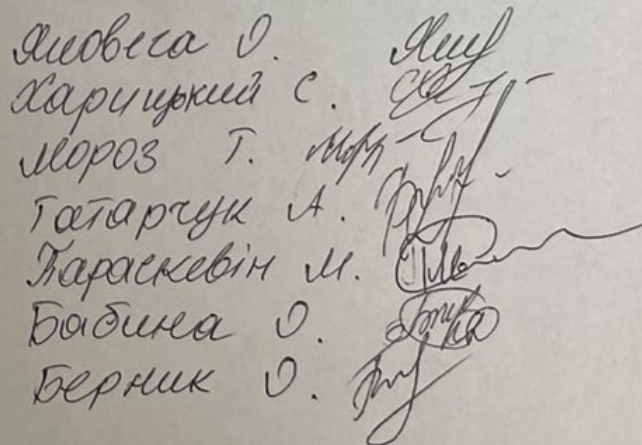 Яловега О.
Харицький С.
Мороз Т.
Татарчук А.
Параскевін М.
Бабина О.
Берник О.